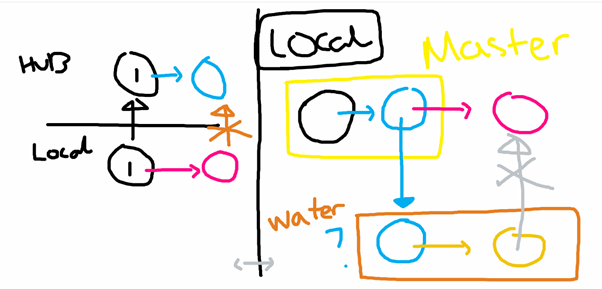 HUB
1
Local
1
LOCAL
Master
water
?